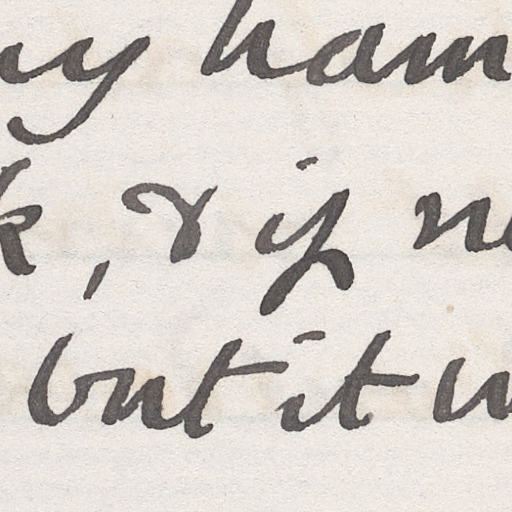 my ham
k, & if ne
but it w